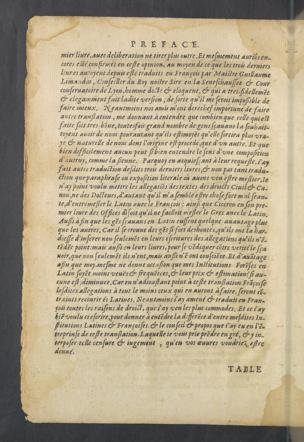 PREFACE.
mier liure, auec deliberation ne tirer plus outre. Et mesmement auroys en-
cores esté confirmé en ceste opinion, au moyen de ce que les trois derniers
liures auroyent depuis esté traduits en François par Maistre Guillaume
Limandas, Conseiller du Roy nostre Sire en la Seneschaussee & Cour
conseruatoire de Lyon, homme docte & eloquent, & qui a tresfidellement
& elegamment fait ladite version, de sorte qu'il me seroit impossible de
faire mieux. Neantmoins noz amis m'ont derechef importuné de faire
autre translation, me donnant à entendre que combien que celle qu'est
faite soit tresbône, toutesfois grand nombre de gens sçauans la souhait-
toyent auoir de nom pour autant qu'ils estimoyēt qu'elle seroit plus vraye
& naturelle de nous dont l'origine est procedé, que d'vn autre. Et que
bien difficilement aucun peut si bien entendre le sens d'vne composition
d'autruy, comme la sienne. Parquoy en acquiesçant à leur requeste, i'ay
fait autre traduction desdits trois derniers liures, & non pas tant traduc-
tion que paraphrase ou exposition litterale où auons veu estre mestier. Ie
n'ay point voulu mettre les allegatiōs des textes des droicts Ciuil & Ca-
non, ne des Docteurs, d'autant qu'il m'a semblé estre chose fort mal sean-
te, d'entremesler le Latin auec le François: ainsi que Ciceron en son pre-
mier liure des Offices disoit qu'il ne falloit mesler le Grec auec le Latin.
Aussi à fin que les gēs sçauans en Latin eussent quelque auantage plus
que les autres. Car il se trouue des gēs si fort deshontez, qu'ils ont la har-
diesse d'inserer non seulement en leurs escritures des allegations qu'ils n'ē-
tēdēt point: mais aussi en leurs liures, pour se vēdiquer chose verité le sça-
uoir, que non seulemēt ils n'ont, mais aussi n'ont onc sceu. Et d'auātage
à fin que moy-mesme ne donne occasion que mes Institutions Forēses en
Latin soyēt moins veuēs & frequētees, & leur prix & estimatiōn si au-
cune est, diminuee. Car en n'adioustant point à ceste translation Frāçoise
lesdites allegations, à tout le moins ceux qui en auront à faire, serōt cō-
traints recourir és Latines. Neantmoins i'ay amené & traduit en Fran-
çois toutes les raisons de droict, que i'ay veu les plus commodes. Et ce i'ay
bien voulu escrire, pour donner à entēdre la differēce d'entre mesdites In-
stitutions Latines & Françoises, & le conseil & propos que i'ay eu en l'ē-
treprinse de ceste translation. Laquelle te vous prie prēdre en gré, & y in-
terposer telle censure & iugement, qu'en voz œuures voudriez estre
donné.
TABLE